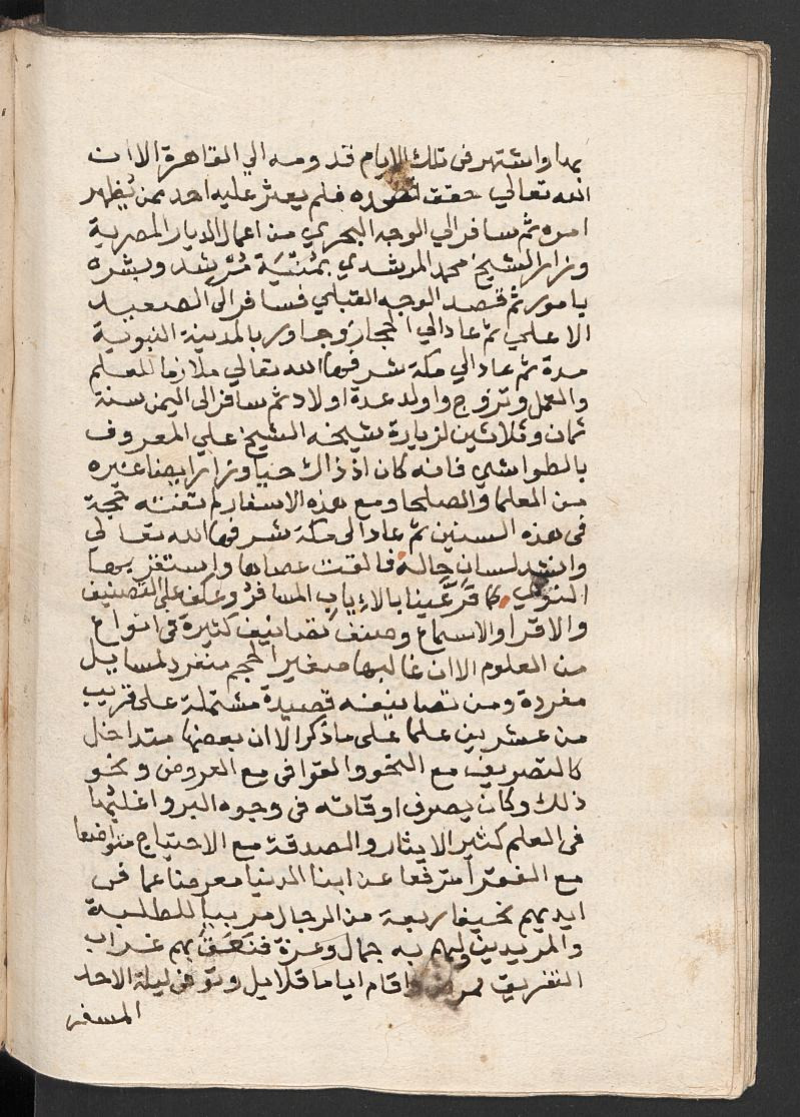 بها واشتهر فى تلك الايام قدومه الي القاهرة الا ان
الله تعالي حقق قصوده فلم يعثر عليه احد ممن يُظهر
امره ثم سافر الي الوجه البحري من اعمال الديار المصرية
وزار الشيخ محمد المرشدي بمُنْيَة مُرْشد وبشره
بامور ثم قصد الوجه القبلي فسافر الى الصعيد
الاعلي ثم عاد الي الحجاز وجاور بالمدينة النبوية
مدة ثم عاد الي مكة شرفها الله تعالي ملازما للعلم
والعمل وتزوج واولد عدة اولاد ثم سافر الى اليمن سنة
ثمان وثلاثين لزيارة شيخه الشيخ علي المعروف
بالطواشي فانه كان اذ ذاك حيا وزار ايضا غيره
من العلما والصلحا ومع هذه الاسفار لم تفته حجة
فى هذه السنين ثم عاد الى مكة شرفها الله تعالى
وانشد لسان حاله فالقت عصاها واستقر بها
النوي كما قرَّ عينا بالاياب المسافرُ وعكف على التصنيف
والاقرا والاسماع وصنف تصانيف كثيرة فى انواع
من العلوم الا ان غالبها صغير الحجم منفرد لمسايل
مفردة ومن تصانيفه قصيدة مشتملة على قريب
من عشرين علما على ما ذكر الا ان بعضها متداخل
كالتصريف مع النحو والقوافى مع العروض ونحو
ذلك وكان يصرف اوقاته فى وجوه البر واغلبها
فى العلم كثير الايثار والصدقة مع الاحتياج متواضعا
مع الفقرا مترفعا عن ابنا الدنيا معرضا عما فى
ايديهم نحيفا ربعة من الرجال مربيا للطلبة
والمريدين ولهم به جمال وعزة فنَعَقَ بهم غراب
التفريق فمرض واقام اياما قلايل وتوفى ليلة الاحد
المسفر